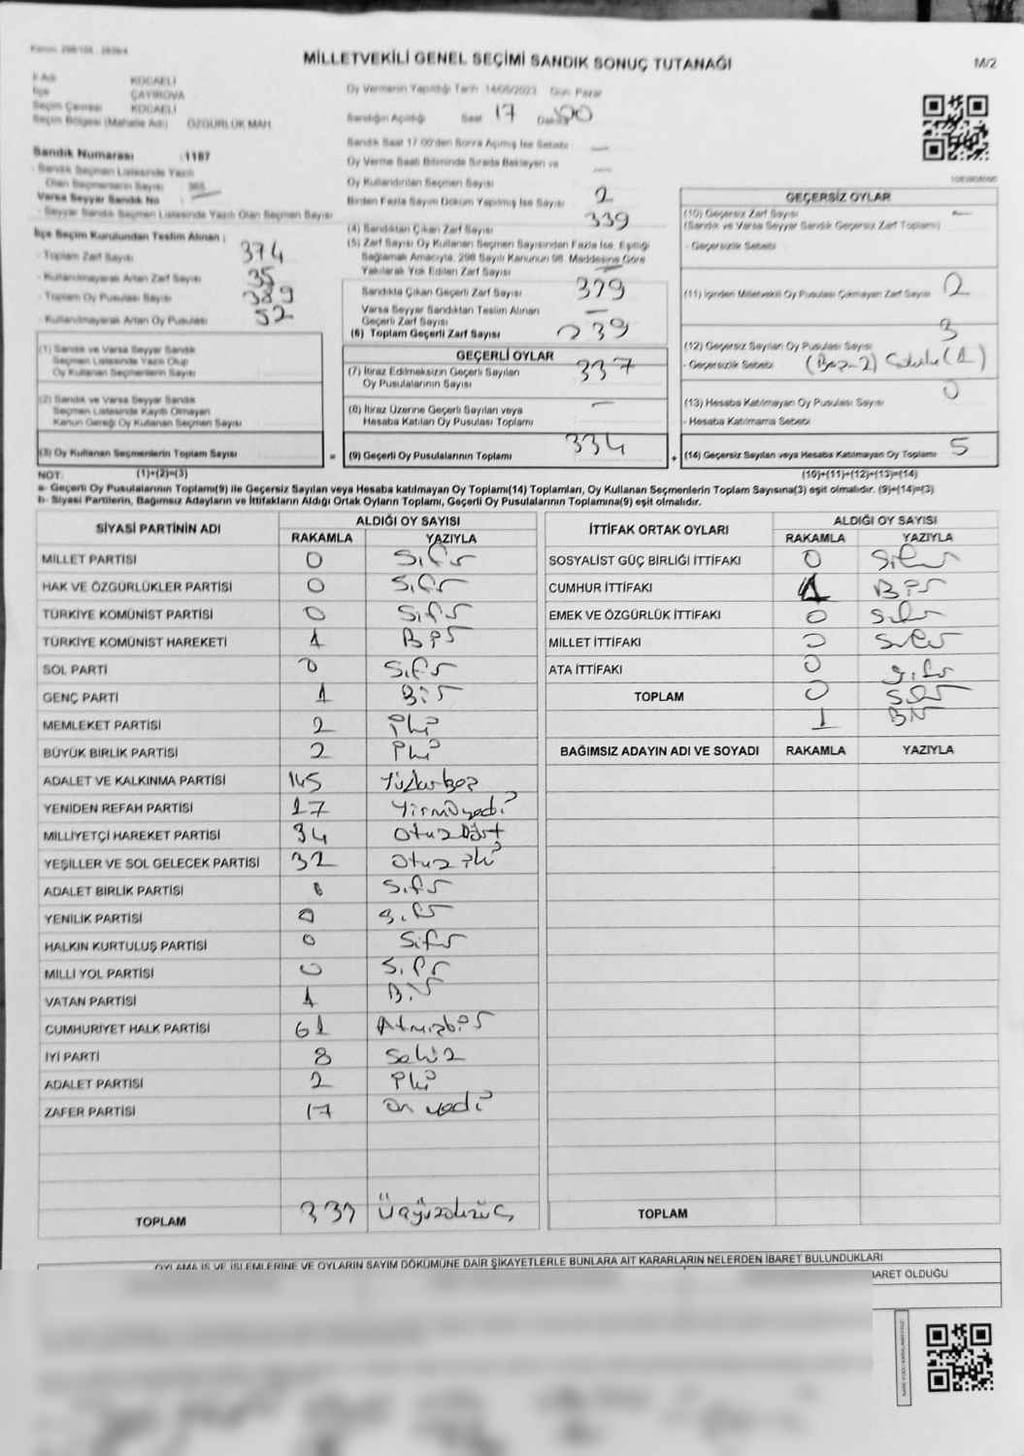 MİLLETVEKİLİ GENEL SEÇİMİ SANDIK SONUÇ TUTANAĞI
M/2
KOCAELİ
ÇAYIROVA
KOCAELİ
Seçim Bölgesi (Mahalle Adı) ÖZGÜRLÜK MAH.
Oy Vermenin Yapıldığı Tarih 14/05/2023 Gün Pazar
Sandığın Açıldığı Saat 17 00
Sandık Saat 17:00'den Sonra Açılmış İse Sebebi —
Oy Verme Saati Bitiminde Sırada Bekleyen ve
Oy Kullandırılan Seçmen Sayısı —
Birden Fazla Sayım Döküm Yapılmış İse Sayısı 2
Sandık Numarası :1187
- Sandık Seçmen Listesinde Yazılı
Olan Seçmenlerin Sayısı 365
Varsa Seyyar Sandık No —
- Seyyar Sandık Seçmen Listesinde Yazılı Olan Seçmen Sayısı
İlçe Seçim Kurulundan Teslim Alınan ;
- Toplam Zarf Sayısı 374
- Kullanılmayarak Artan Zarf Sayısı 35
- Toplam Oy Pusulası Sayısı 389
- Kullanılmayarak Artan Oy Pusulası 52
(1) Sandık ve Varsa Seyyar Sandık
Seçmen Listesinde Yazılı Olup
Oy Kullanan Seçmenlerin Sayısı
(2) Sandık ve Varsa Seyyar Sandık
Seçmen Listesinde Kayıtlı Olmayan
Kanun Gereği Oy Kullanan Seçmen Sayısı
(3) Oy Kullanan Seçmenlerin Toplam Sayısı
(4) Sandıktan Çıkan Zarf Sayısı 339
(5) Zarf Sayısı Oy Kullanan Seçmen Sayısından Fazla İse, Eşitliği
Sağlamak Amacıyla, 298 Sayılı Kanunun 98. Maddesine Göre
Yakılarak Yok Edilen Zarf Sayısı —
Sandıkta Çıkan Geçerli Zarf Sayısı 339
Varsa Seyyar Sandıktan Teslim Alınan
Geçerli Zarf Sayısı —
(6) Toplam Geçerli Zarf Sayısı 339
GEÇERLİ OYLAR
(7) İtiraz Edilmeksizin Geçerli Sayılan
Oy Pusulalarının Sayısı 337
(8) İtiraz Üzerine Geçerli Sayılan veya
Hesaba Katılan Oy Pusulası Toplamı —
= (9) Geçerli Oy Pusulalarının Toplamı 334
GEÇERSİZ OYLAR
(10) Geçersiz Zarf Sayısı —
(Sandık ve Varsa Seyyar Sandık Geçersiz Zarf Toplamı)
- Geçersizlik Sebebi
(11) İçinden Milletvekili Oy Pusulası Çıkmayan Zarf Sayısı 2
(12) Geçersiz Sayılan Oy Pusulası Sayısı 3
- Geçersizlik Sebebi
(13) Hesaba Katılmayan Oy Pusulası Sayısı 0
- Hesaba Katılmama Sebebi
+ (14) Geçersiz Sayılan veya Hesaba Katılmayan Oy Toplamı 5
NOT: (1)+(2)=(3)
(10)+(11)+(12)+(13)=(14)
a- Geçerli Oy Pusulalarının Toplamı(9) ile Geçersiz Sayılan veya Hesaba katılmayan Oy Toplamı(14) Toplamları, Oy Kullanan Seçmenlerin Toplam Sayısına(3) eşit olmalıdır. (9)+(14)=(3)
b- Siyasi Partilerin, Bağımsız Adayların ve İttifakların Aldığı Ortak Oyların Toplamı, Geçerli Oy Pusulalarının Toplamına(9) eşit olmalıdır.
SİYASİ PARTİNİN ADI ALDIĞI OY SAYISI
RAKAMLA YAZIYLA
MİLLET PARTİSİ 0 Sıfır
HAK VE ÖZGÜRLÜKLER PARTİSİ 0 Sıfır
TÜRKİYE KOMÜNİST PARTİSİ 0 Sıfır
TÜRKİYE KOMÜNİST HAREKETİ 1 Bir
SOL PARTİ 0 Sıfır
GENÇ PARTİ 1 Bir
MEMLEKET PARTİSİ 2 İki
BÜYÜK BİRLİK PARTİSİ 2 İki
ADALET VE KALKINMA PARTİSİ 145 Yüzkırkbeş
YENİDEN REFAH PARTİSİ 27 Yirmiyedi
MİLLİYETÇİ HAREKET PARTİSİ 34 Otuzdört
YEŞİLLER VE SOL GELECEK PARTİSİ 32 Otuz iki
ADALET BİRLİK PARTİSİ 0 Sıfır
YENİLİK PARTİSİ 0 Sıfır
HALKIN KURTULUŞ PARTİSİ 0 Sıfır
MİLLİ YOL PARTİSİ 0 Sıfır
VATAN PARTİSİ 1 Bir
CUMHURİYET HALK PARTİSİ 61 Atmışbir
İYİ PARTİ 8 Sekiz
ADALET PARTİSİ 2 İki
ZAFER PARTİSİ 17 On yedi
TOPLAM 333 Üçyüzotuzüç
İTTİFAK ORTAK OYLARI ALDIĞI OY SAYISI
RAKAMLA YAZIYLA
SOSYALİST GÜÇ BİRLİĞİ İTTİFAKI 0 Sıfır
CUMHUR İTTİFAKI 1 Bir
EMEK VE ÖZGÜRLÜK İTTİFAKI 0 Sıfır
MİLLET İTTİFAKI 0 Sıfır
ATA İTTİFAKI 0 Sıfır
TOPLAM 0 Sıfır
1 Bir
BAĞIMSIZ ADAYIN ADI VE SOYADI RAKAMLA YAZIYLA
TOPLAM
OYLAMA İŞ VE İŞLEMLERİNE VE OYLARIN SAYIM DÖKÜMÜNE DAİR ŞİKAYETLERLE BUNLARA AİT KARARLARIN NELERDEN İBARET BULUNDUKLARI
BARET OLDUĞU